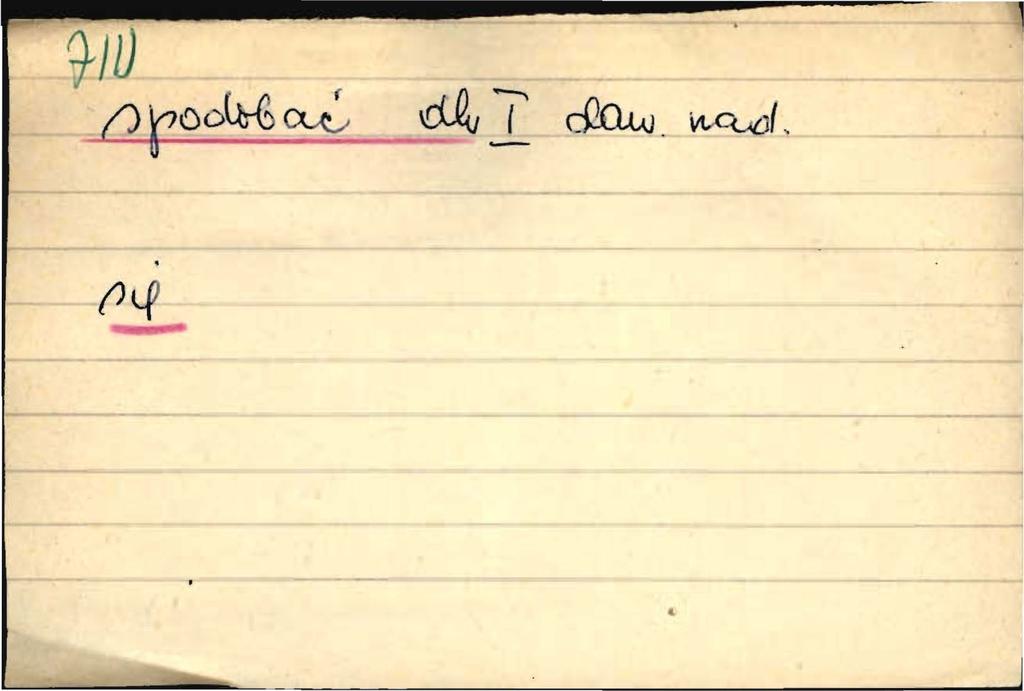 7IV
spodobać dk I daw. nad.
się